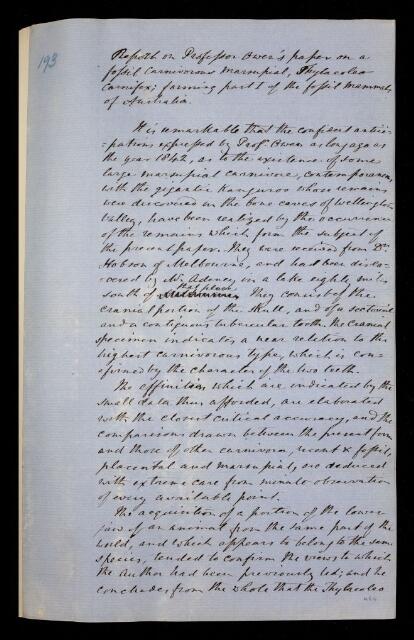 193
Report on Professor Owen's paper on a
fossil Carnivorous Marsupial, Thylacoleo
Carnifex; forming part I of the fossil Mammals
of Australia.
It is remarkable that the confident antici-
=pations expressed by Profr. Owen as long ago as
the year 1842, as to the existence of some
large marsupial carnivore, contemporaneous
with the gigantic kangaroo whose remains
were discovered in the bone caves of Wellington
Valley, have been realized by the occurrence
of the remains which form the subject of
the present paper. They were received from Dr.
Hobson of Melbourne, and had been disco-
=vered by Mr. Adeney in a lake eighty miles
south of that place. They consist of the
cranial portion of the Skull, and of a sectorial
and a contiguous tubercular tooth. The cranial
specimen indicates a near relation to the
highest carnivorous type, which is con-
=firmed by the character of the two teeth.
The affinities which are indicated by the
small data thus afforded, are elaborated
with the closest critical accuracy, and the
comparisons drawn between the present form
and those of other carnivora, recent & fossil,
placental and marsupial, are deduced
with extreme care from minute observation
of every available point.
The acquisition of a portion of the lower
jaw of an animal from the same part of the
world, and which appears to belong to the same
species, tended to confirm the views to which
the Author had been previously led; and he
concludes from the whole that the Thylacoleo